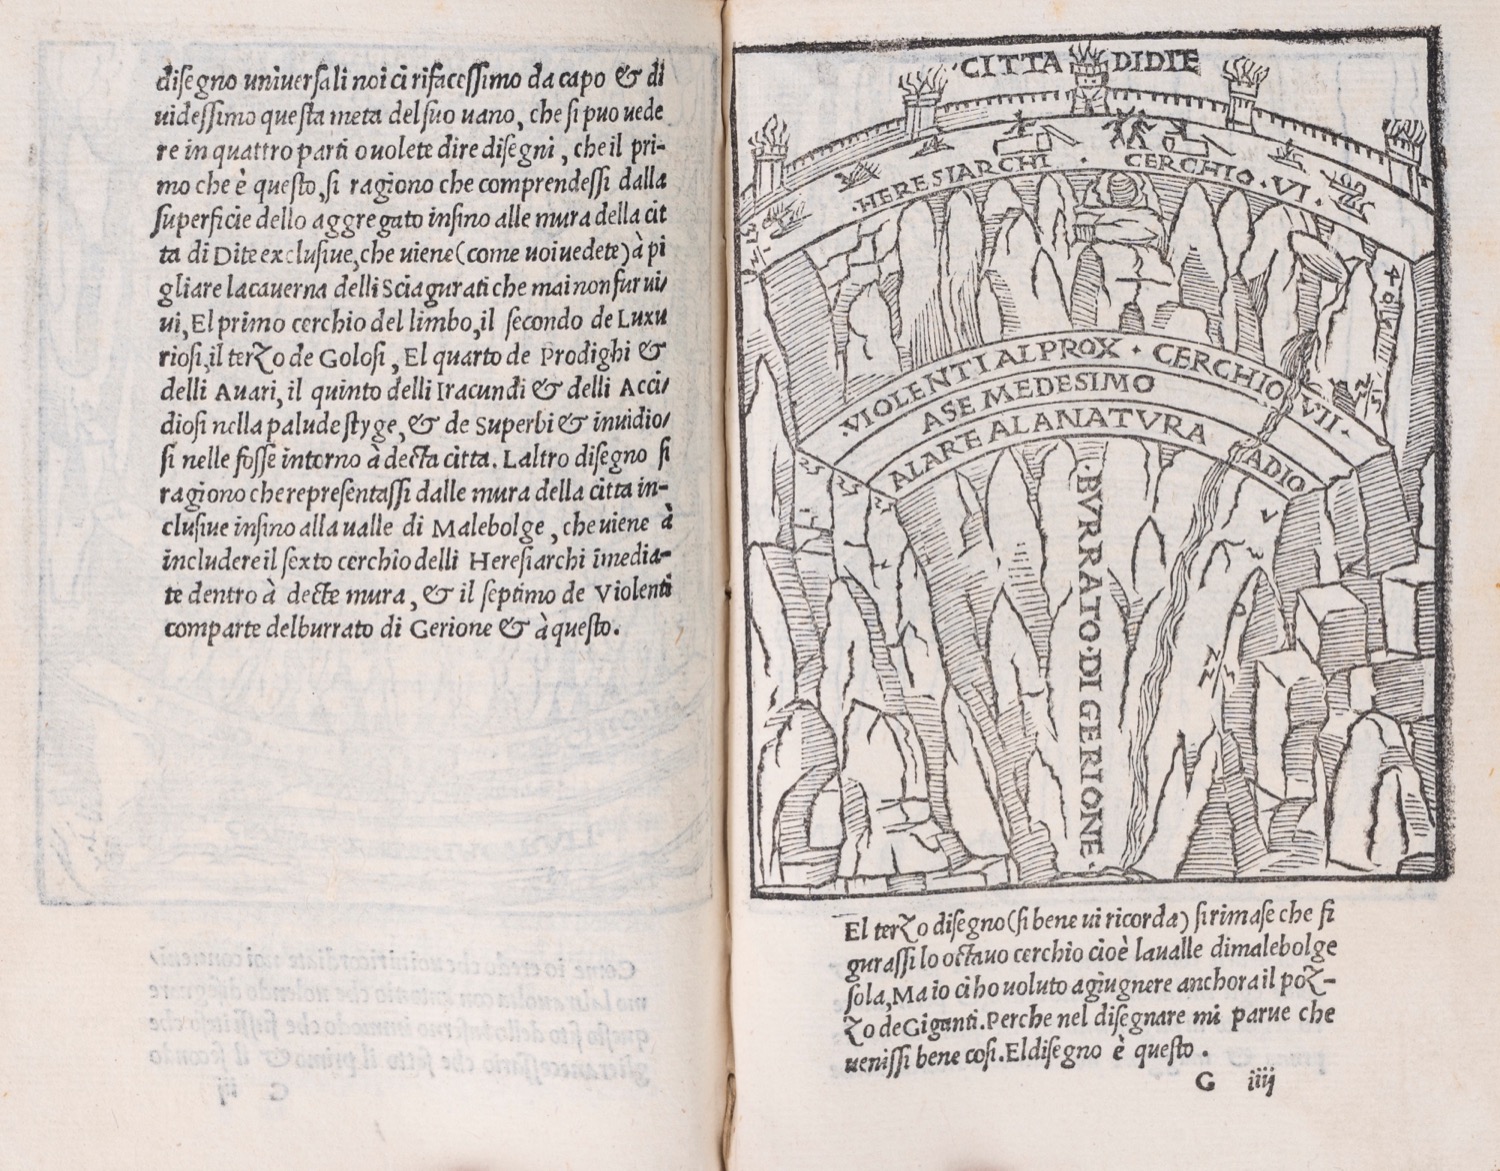 disegno universali noi ci rifacessimo da capo & di
uidessimo questa meta del suo uano, che si puo uede
re in quattro parti o uolete dire disegni, che il pri-
mo che è questo, si ragiono che comprendessi dalla
superficie dello aggregato insino alle mura della cit
ta di Dite exclusiue, che uiene (come uoi uedete) à pi
gliare la cauerna delli Sciagurati che mai non fur ui/
ui, El primo cerchio del limbo, il secondo de Luxu
riosi, il terzo de Golosi, El quarto de Prodighi &
delli Auari, il quinto delli Iracundi & delli Acci/
diosi nella palude styge, & de Superbi & inuidio/
si nelle fosse intorno à decta citta. Laltro disegno si
ragiono che representassi dalle mura della citta in-
clusiue insino alla ualle di Malebolge, che uiene à
includere il sexto cerchio delli Heresiarchi imedia-
te dentro à decte mura, & il septimo de Violenti
comparte del burrato di Gerione & à questo.
CITTA DI DITE
HERESIARCHI · CERCHIO · VI ·
· VIOLENTI AL PROX · CERCHIO VII ·
A SE MEDESIMO
ALARE ALA NATVRA ADIO
· BVRRATO · DI GERIONE ·
El terzo disegno (si bene ui ricorda) si rimase che fi
gurassi lo octauo cerchio cioè la ualle di malebolge
sola, Ma io ci ho uoluto agiugnere anchora il poz-
zo de Giganti. Perche nel disegnare mi parue che
uenissi bene cosi. El disegno è questo.
G iiij